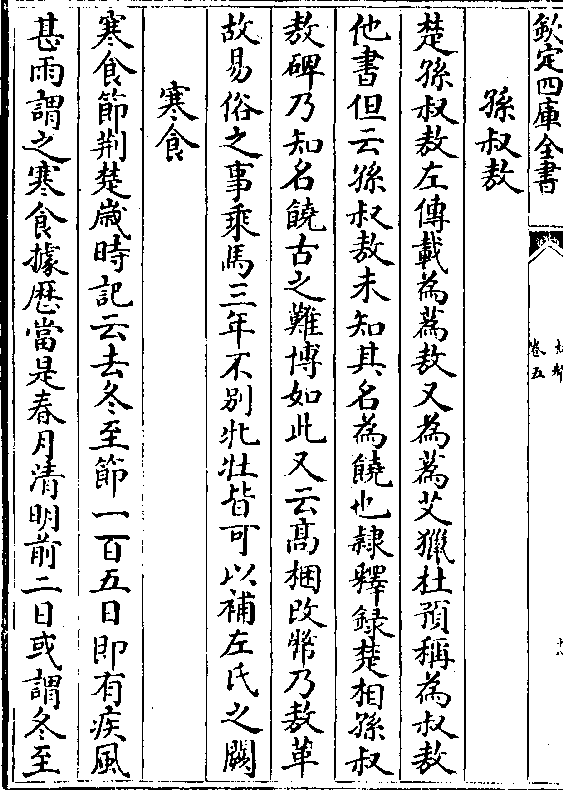 欽定四庫全書
卷五
孫叔敖
楚孫叔敖左傳載為蒍敖又為蒍艾獵杜預稱為叔敖
他書但云孫叔敖未知其名為饒也隸釋録楚相孫叔
敖碑乃知名饒古之難博如此又云髙梱改幣乃敖革
故易俗之事乘馬三年不别牝牡皆可以補左氏之闕
寒食
寒食節荆楚歳時記云去冬至節一百五日即有疾風
甚雨謂之寒食據歴當是春月清明前二日或謂冬至